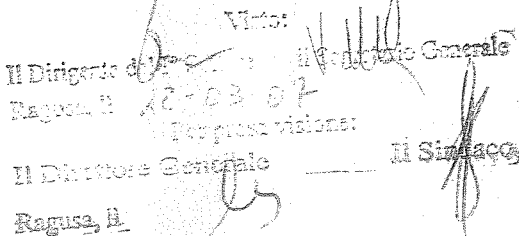 Visto:
Il Dirigente d il Segretario Generale
Ragusa, il 12-03-07
Per presa visione:
Il Direttore Generale Il Sindaco
Ragusa, il